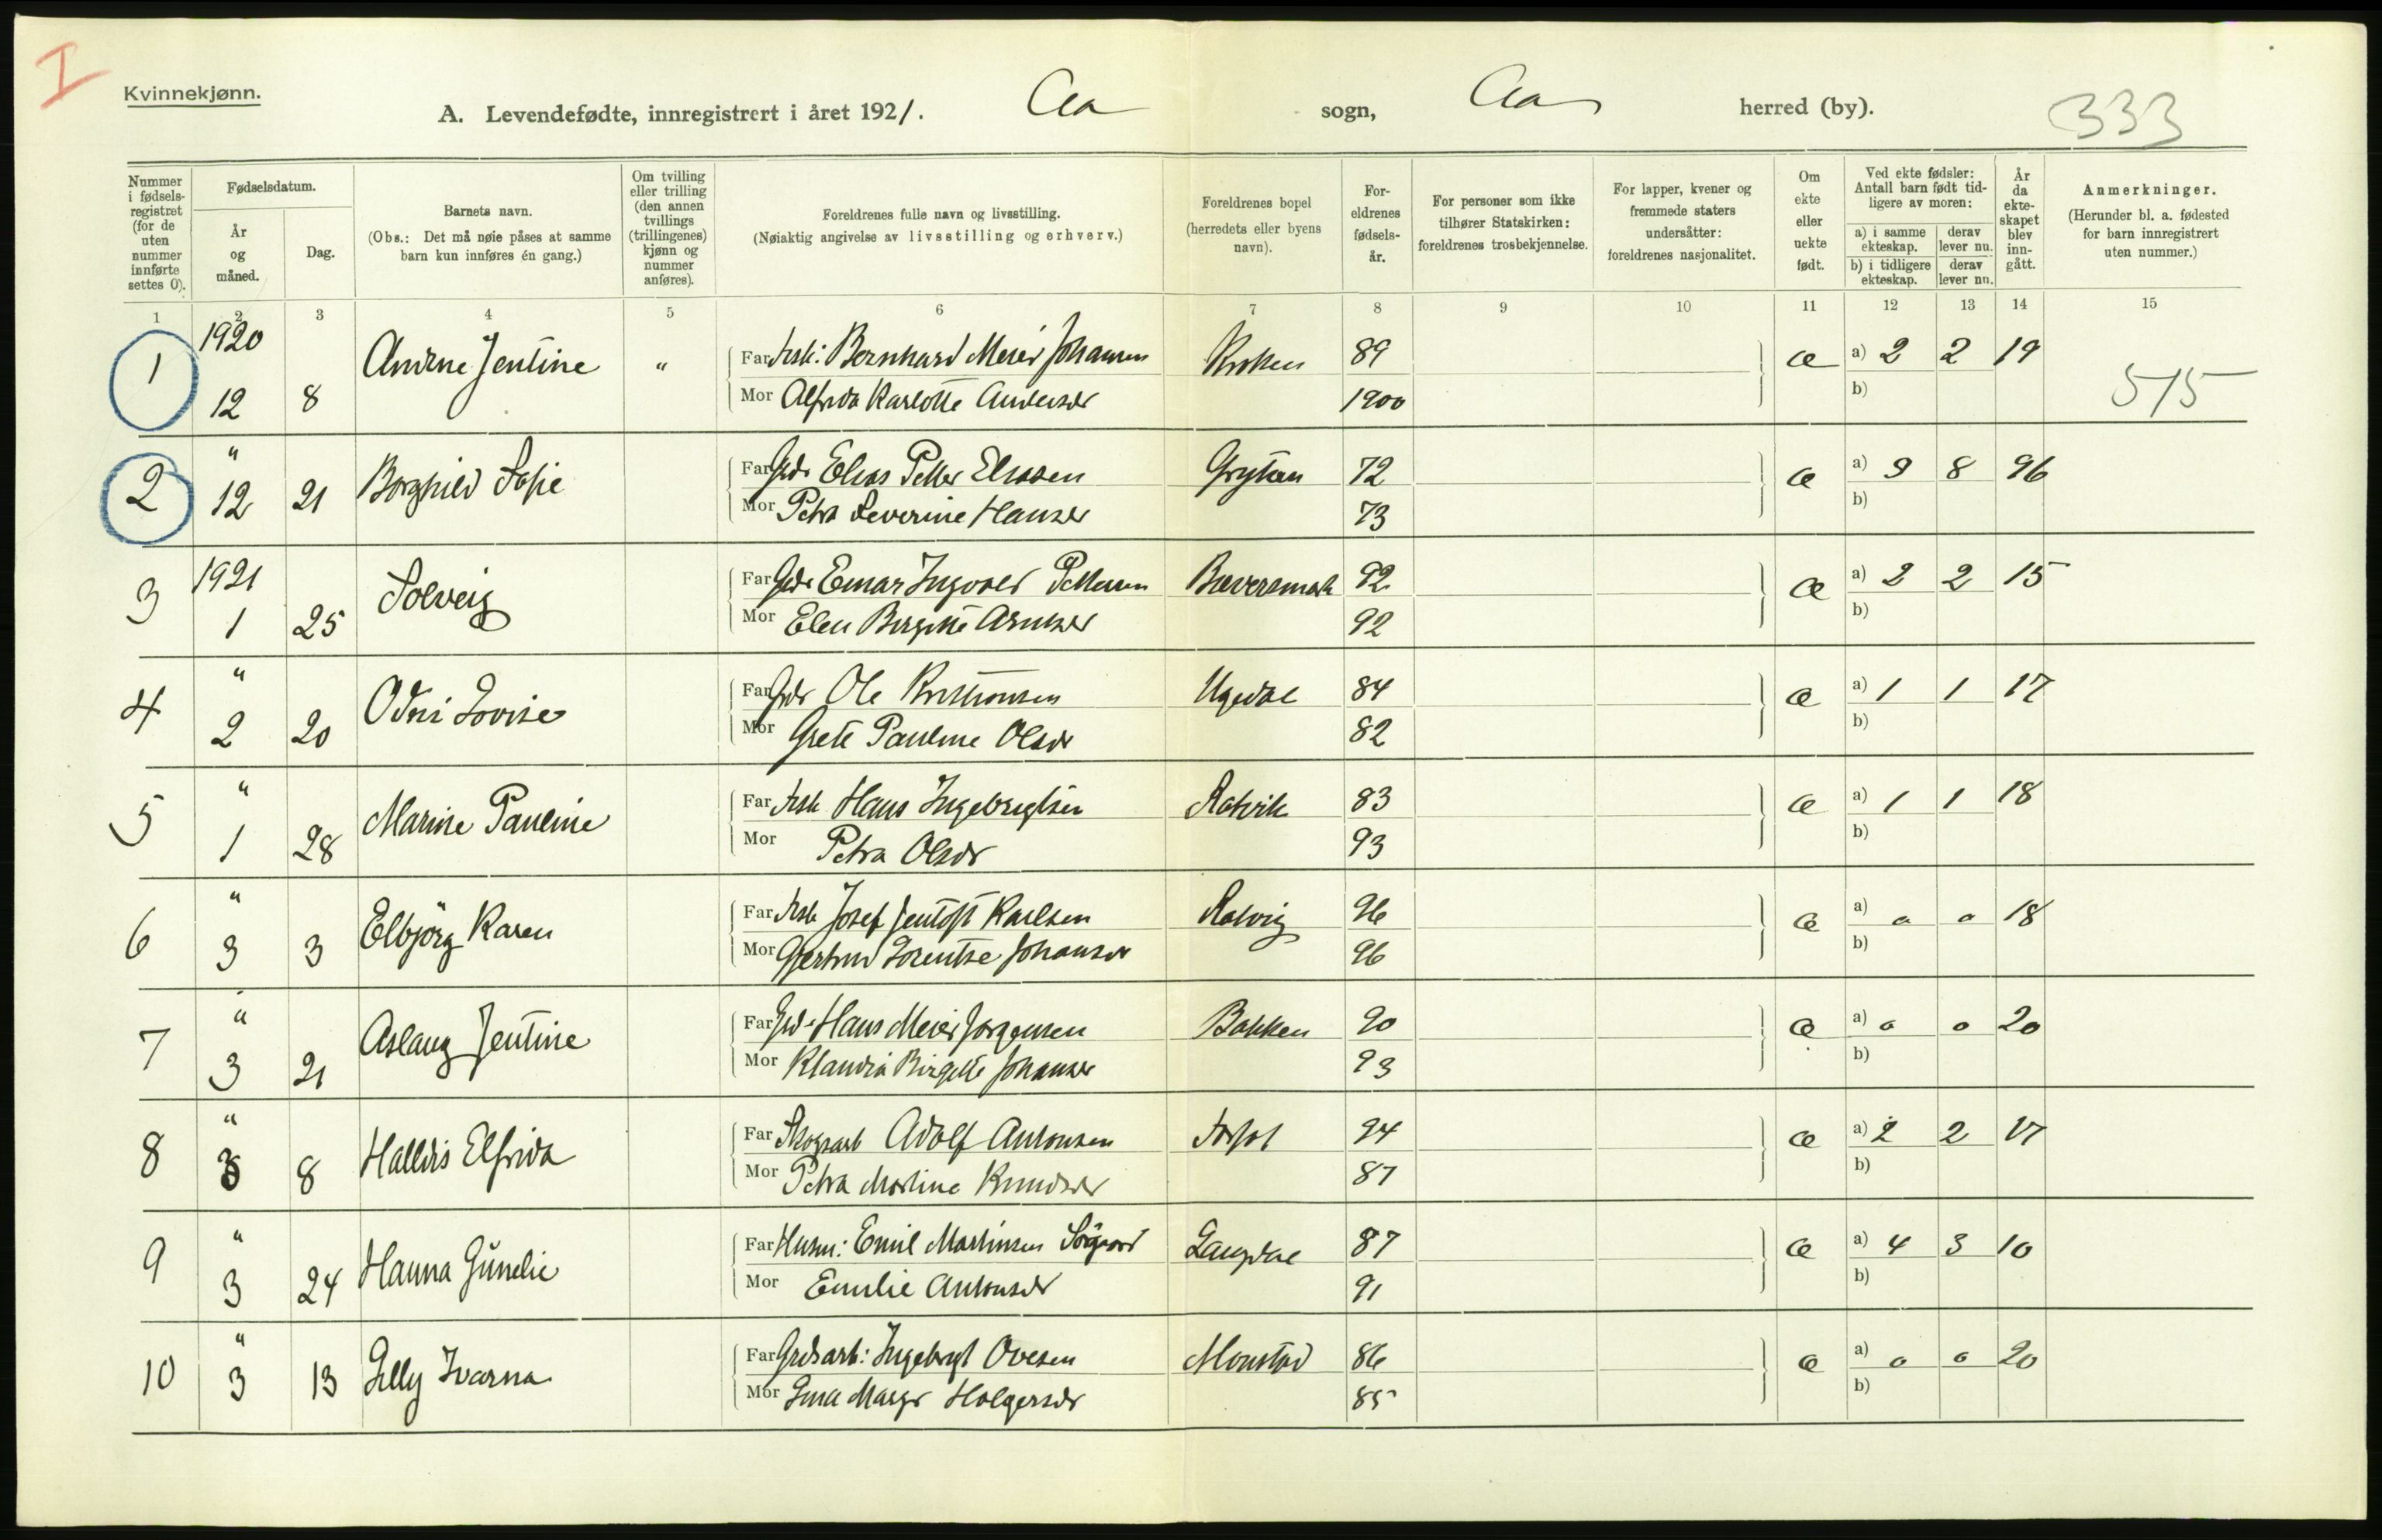 I
Kvinnekjønn.
A. Levendefødte, innregistrert i året 1921. Aa sogn, Aa herred (by). 333
Nummer i fødselsregistret (for de uten nummer innførte settes 0).
Fødselsdatum.
År og måned.
Dag.
Barnets navn.
(Obs.: Det må nøie påses at samme barn kun innføres én gang.)
Om tvilling eller trilling (den annen tvillings (trillingenes) kjønn og nummer anføres).
Foreldrenes fulle navn og livsstilling.
(Nøiaktig angivelse av livsstilling og erhverv.)
Foreldrenes bopel (herredets eller byens navn).
Foreldrenes fødselsår.
For personer som ikke tilhører Statskirken: foreldrenes trosbekjennelse.
For lapper, kvener og fremmede staters undersåtter: foreldrenes nasjonalitet.
Om ekte eller uekte født.
Ved ekte fødsler: Antall barn født tidligere av moren:
a) i samme ekteskap. derav lever nu.
b) i tidligere ekteskap. derav lever nu.
År da ekteskapet blev inngått.
Anmerkninger.
(Herunder bl. a. fødested for barn innregistrert uten nummer.)
1 2 3 4 5 6 7 8 9 10 11 12 13 14 15
1 1920 12 8 Jentine " Far Bernhard Meier Johansen Kroken 89 æ a) 2 2 19 515
Mor Alfrida Karlotte Andersdr 1900 b)
2 " 12 21 Borghild Sofie Far Grdr Elias Petter Eliasen Grytan 72 æ a) 9 8 96
Mor Petra Severine Hansdr 73 b)
3 1921 1 25 Solveig Far Grdr Einar Ingvald Pettersen Bæversmark 92 æ a) 2 2 15
Mor Elen Bergitte Arntsdr 92 b)
4 " 2 20 Odni Lovise Far Grdr Ole Kristiansen 84 æ a) 1 1 17
Mor Grete Pauline Olsdr 82 b)
5 " 1 28 Marine Pauline Far Fisk Hans Ingebrigtsen 83 æ a) 1 1 18
Mor Petra Olsdr 93 b)
6 " 3 3 Elbjörg Karen Far Fisk Josef Jentoft Karlsen 96 æ a) 0 0 18
Mor Gjertrud Lorentse Johansdr 96 b)
7 " 3 21 Aslaug Jentine Far Grdr Hans Meier Jørgensen Bakken 90 æ a) 0 0 20
Mor Klaudia Birgitte Johansdr 93 b)
8 " 3 8 Halldis Elfrida Far Skogsarb Adolf Antonsen 94 æ a) 2 2 17
Mor Petra Martine Knudsdr 87 b)
9 " 3 24 Hanna Gunelie Far Husm: Emil Martinsen Sörgaard Langdal 87 æ a) 4 3 10
Mor Emilie Antonsdr 91 b)
10 " 3 13 Lilly Ivarna Far Grdsarb: Ingebrigt Ovesen Monstad 86 æ a) 0 0 20
Mor Lina Margr Holgersdr 85 b)